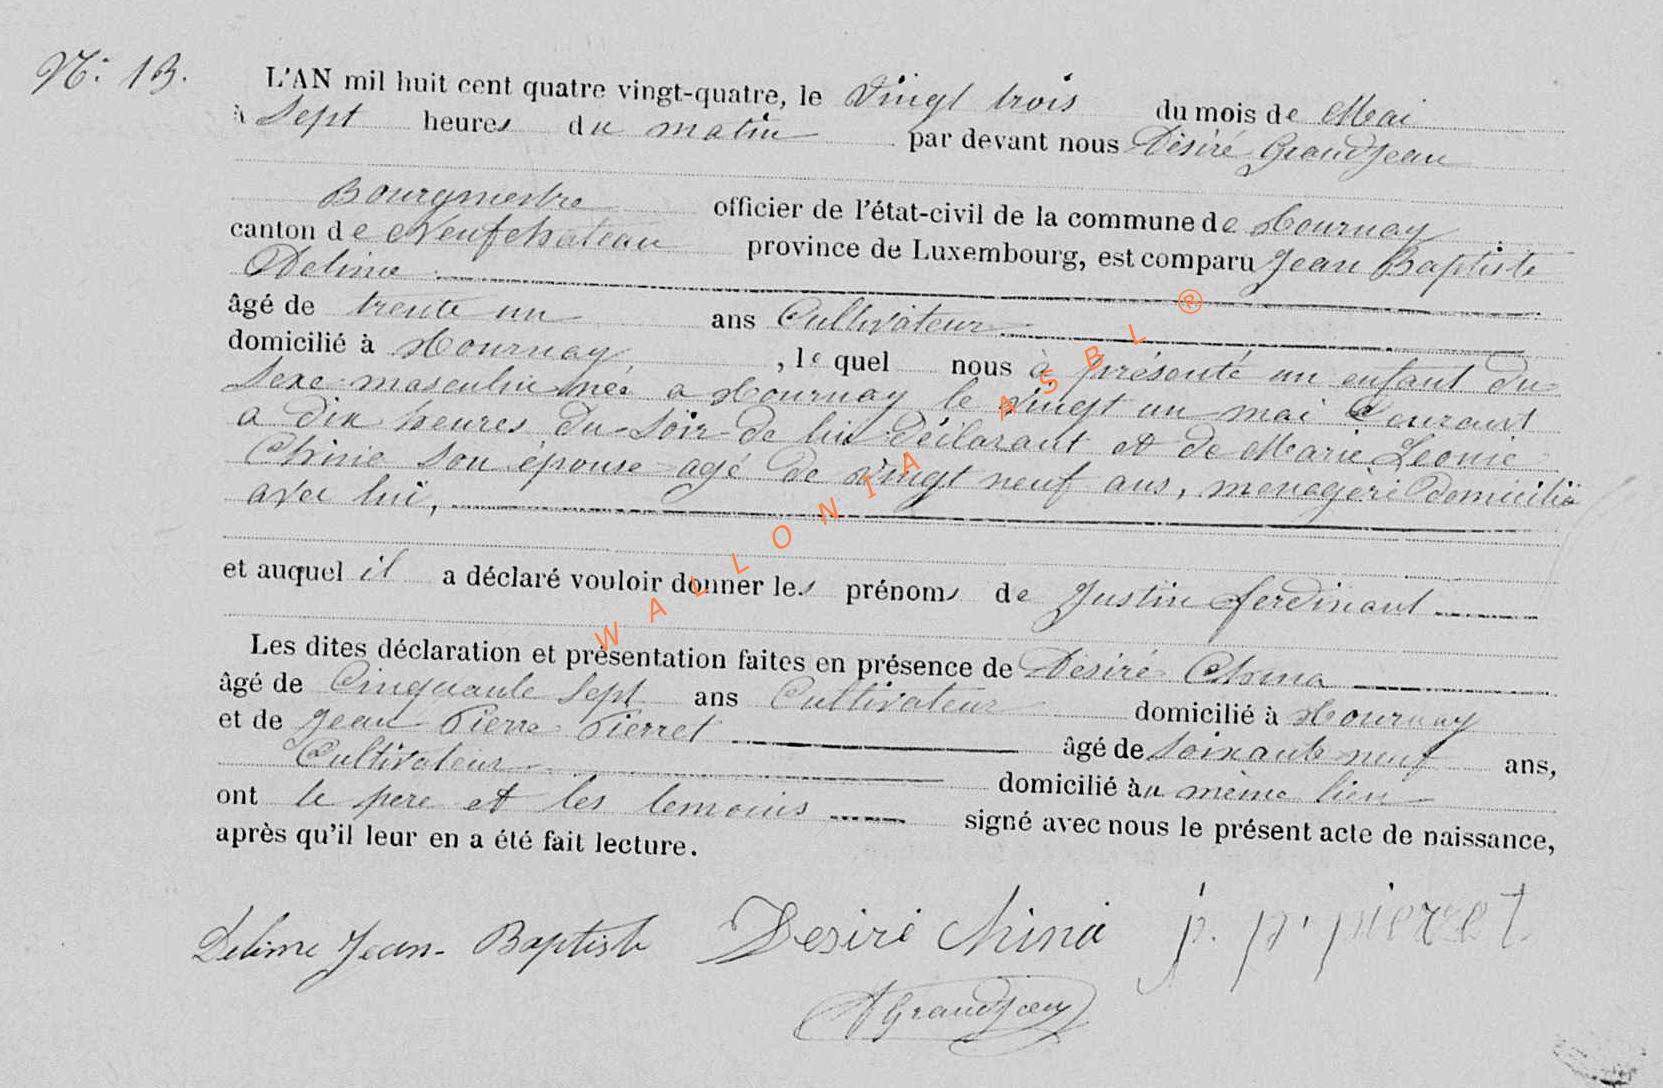 N.: 13.
L'AN mil huit cent quatre vingt-quatre, le Vingt trois du mois de Mai
à Sept heures du matin par devant nous Désiré Grandjean
Bourgmestre officier de l'état-civil de la commune de Tournay
canton de Neufchateau province de Luxembourg, est comparu Jean Baptiste
Delime
âgé de trente un ans Cultivateur
domicilié à Tournay, le quel nous à présenté un enfant du
Sexe masculin né a Tournay le Vingt un mai Courant
a dix heures du Soir de lui déclarant et de Marie Léonie
Chine Son épouse agé de Vingt neuf ans, menagère domicilié
avec lui,
et auquel il a déclaré vouloir donner les prénoms de Justin ferdinant
Les dites déclaration et présentation faites en présence de Desiré China
âgé de Cinquante Sept ans Cultivateur domicilié à Tournay
et de Jean Pierre Pierret âgé de Soixante neuf ans,
Cultivateur domicilié àu même lieu
ont le pere et les temoins signé avec nous le présent acte de naissance,
après qu'il leur en a été fait lecture.
Delime Jean-Baptiste Desiré China j. p. pierret
DGrandjean
WALLONIA ASBL ®